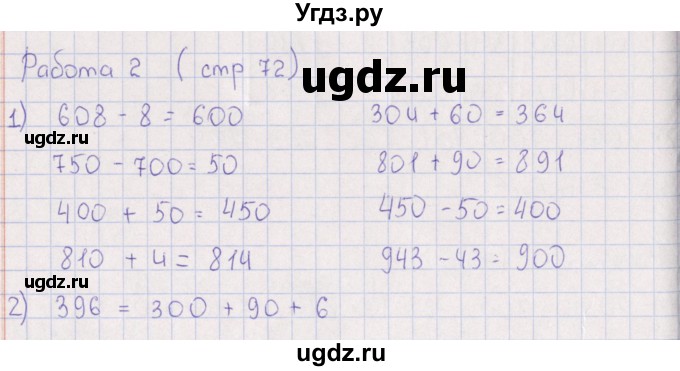 Угдз.ру
Работа 2 (стр 72)
ugdz.ru
1) 608 - 8 = 600 304 + 60 = 364
ugdz.ru
750 - 700 = 50 801 + 90 = 891
400 + 50 = 450 450 - 50 = 400
ugdz.ru
810 + 4 = 814 943 - 43 = 900
ugdz.ru
2) 396 = 300 + 90 + 6
ugdz.ru
ugdz.ru